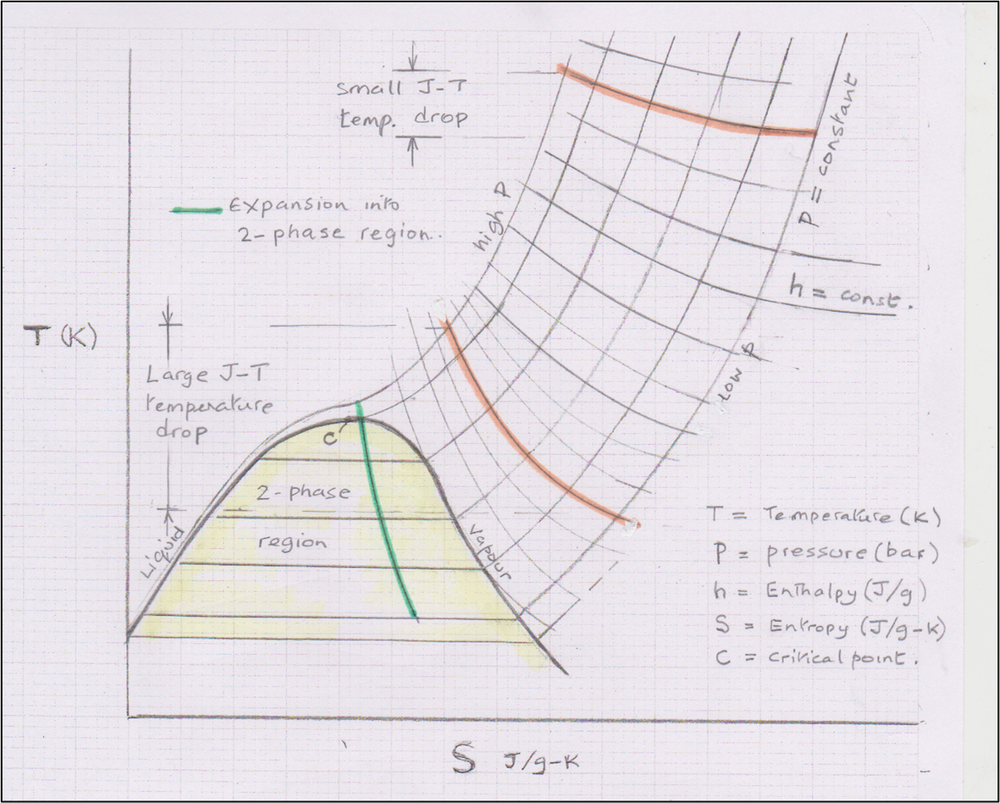 small J-T
temp. drop
Expansion into
2-phase region.
high P
P = constant
h = const.
Low P
T (K)
Large J-T
temperature
drop
C
2-phase
region
Liquid
Vapour
T = Temperature (K)
P = pressure (bar)
h = Enthalpy (J/g)
S = Entropy (J/g-K)
C = critical point.
S J/g-K